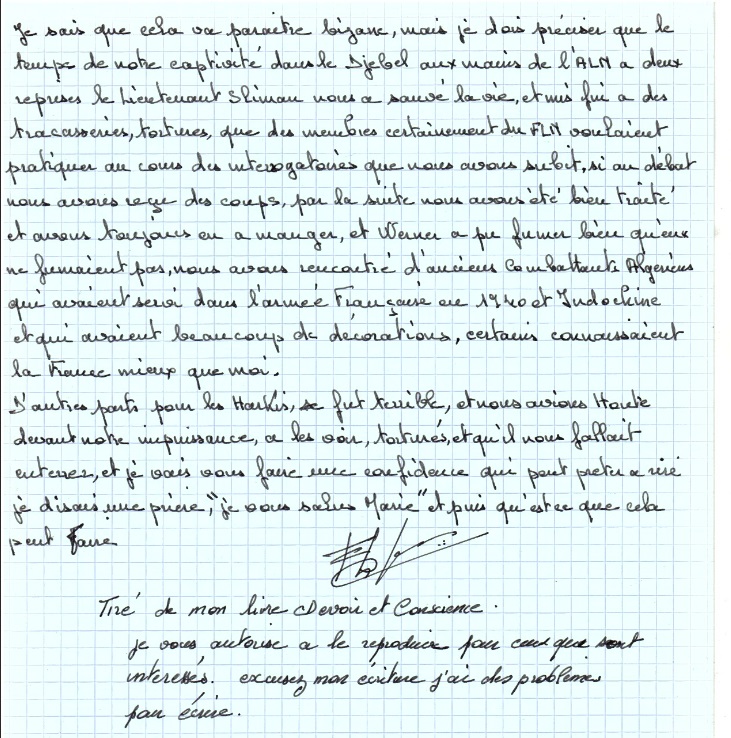 Je sais que cela va paraitre bizare, mais je dois préciser que le
temps de notre captivité dans le Djebel aux mains de l'ALN a deux
reprises le Lieutenant Sliman nous a sauvé la vie, et mis fin a des
tracasseries, tortures, que des membres certainement du FLN voulaient
pratiquer au cours des interogatoires que nous avons subit, si au début
nous avons reçu des coups, par la suite nous avons été bien traité
et avons toujours eu a manger, et Werner a pu fumer bien qu'eux
ne fumaient pas, nous avons rencontré d'anciens Combattants Algeriens
qui avaient servi dans l'armée Française en 1940 et Indochine
et qui avaient beaucoup de décorations, certains connaissaient
la France mieux que moi.
D'autres parts pour les Harkis, se fut terrible, et nous avions Honte
devant notre impuissance, a les voir, torturés, et qu'il nous fallait
enterrer, et je vais vous faire une confidence qui peut preter a rire
je disais une prière, "je vous salus Marie" et puis qu'est ce que cela
peut faire
Tiré de mon livre Devoir et Conscience.
je vous autorise a le reproduire pour ceux que sont
interessés. excusez mon écriture j'ai des problèmes
pour écrire.